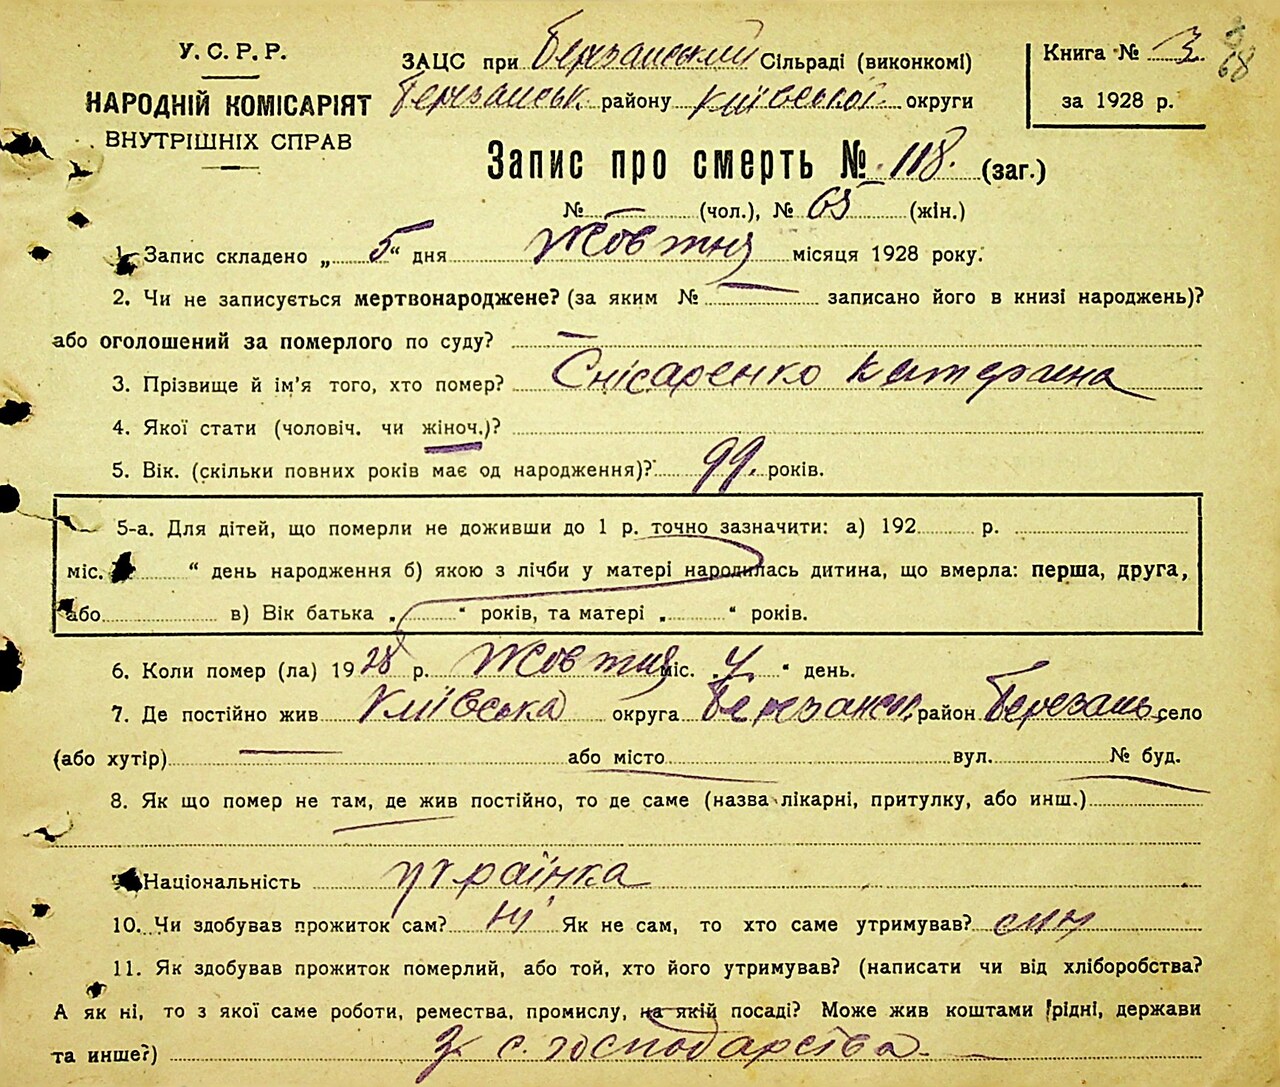 У. С. Р. Р.
НАРОДНІЙ КОМІСАРІЯТ
ВНУТРІШНІХ СПРАВ
ЗАЦС при Березанській Сільраді (виконкомі)
Березанськ району Київської округи
Книга № 3
за 1928 р.
68
Запис про смерть № 118. (заг.)
№ (чол.), № 65 (жін.)
1. Запис складено „ 5 “ дня Жовтня місяця 1928 року.
2. Чи не записується мертвонароджене? (за яким № — записано його в книзі народжень)?
або оголошений за померлого по суду? —
3. Прізвище й ім'я того, хто помер? Снісаренко Катерина
4. Якої стати (чоловіч. чи жіноч.)?
5. Вік. (скільки повних років має од народження)? 99. років.
5-а. Для дітей, що померли не доживши до 1 р. точно зазначити: а) 192 р.
міс. “ день народження б) якою з лічби у матері народилась дитина, що вмерла: перша, друга,
або в) Вік батька „ “ років, та матері „ “ років.
6. Коли помер (ла) 1928 р. Жовтня міс. „ 4 “ день.
7. Де постійно жив Київська округа Березанськ. район Березань село
(або хутір) — або місто вул. № буд.
8. Як що помер не там, де жив постійно, то де саме (назва лікарні, притулку, або инш.)
Національність Українка
10. Чи здобував прожиток сам? ні Як не сам, то хто саме утримував? син
11. Як здобував прожиток померлий, або той, хто його утримував? (написати чи від хліборобства?
А як ні, то з якої саме роботи, ремества, промислу, на якій посаді? Може жив коштами рідні, держави
та инше?) З с. господарства.